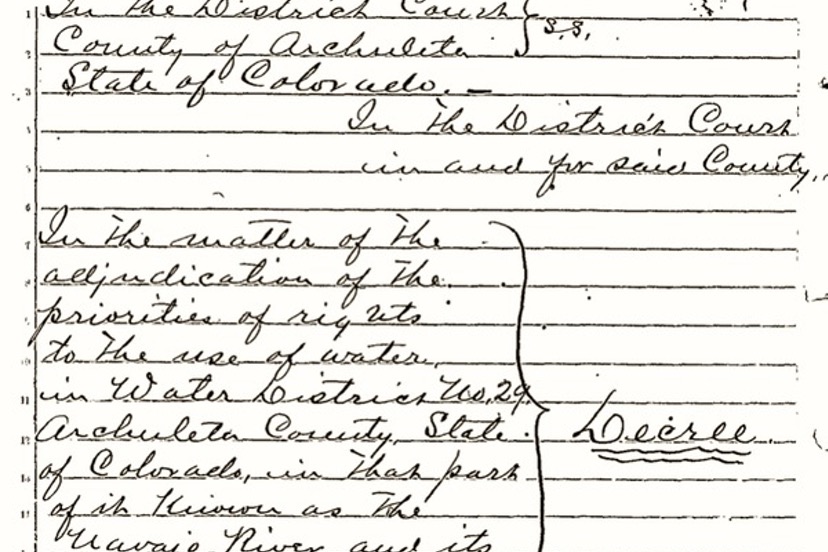 In the District Court
County of Archuleta
s.s.
State of Colorado.
In the District Court
in and for said County,
In the matter of the
adjudication of the
priorities of rights
to the use of water,
in Water District No. 29,
Archuleta County, State
Decree.
of Colorado, in that part
of it known as the
Navajo River and its